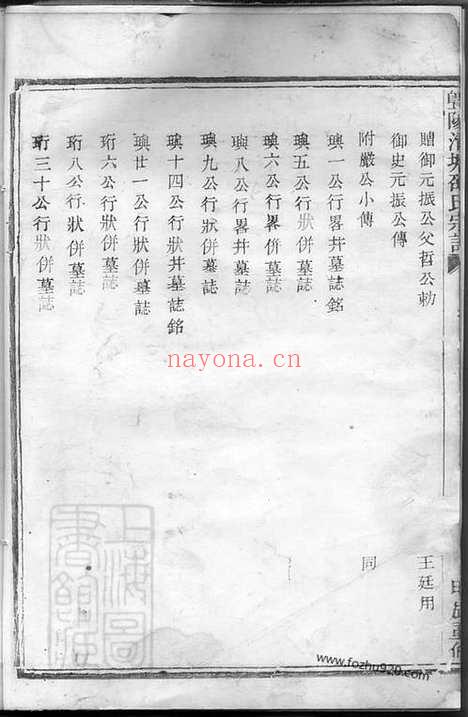 贈御元振公父哲公勅
王廷用
御史元振公傳
附嚴公小傳
同
璵一公行畧并墓誌銘
璵五公行狀併墓誌
璵六公行畧併墓誌
璵八公行畧并墓誌
璵九公行狀併墓誌
璵十四公行狀并墓誌銘
璵廿一公行狀併墓誌
珩六公行狀併墓誌
珩八公行狀併墓誌
珩三十公行狀併墓誌
nayona.cn
上海圖書館藏
www.fozhu920.com